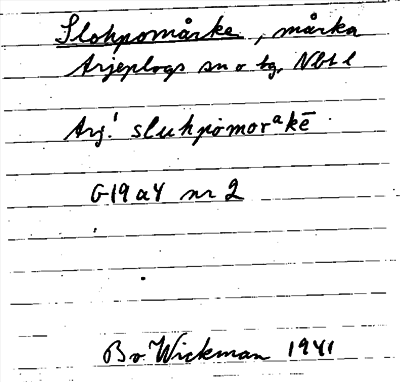 Slohpomårke, mårka
Arjeplogs sn o tg. Nbtl
Arj.! sluhpomorᵃkē
G19 a4 nr 2
Bo Wickman 1941